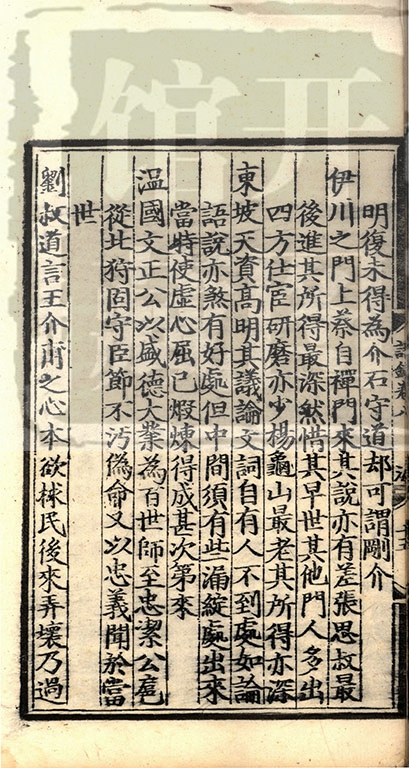 明復未得為介石守道却可謂剛介
伊川之門上蔡自禪門來其說亦有差張思叔最
後進其所得最深然惜其早世其他門人多出
四方仕宦研磨亦少楊龜山最老其所得亦深
東坡天資髙明其議論文詞自有人不到處如論
語說亦煞有好處但中間須有此漏綻處出來
當時使虛心屈己煅煉得成甚次第來
温國文正公以盛德大業為百世師至忠潔公扈
從北狩固守臣節不污偽命又以忠義聞於當
世
劉叔道言王介甫之心本欲捄民後來弄壞乃過